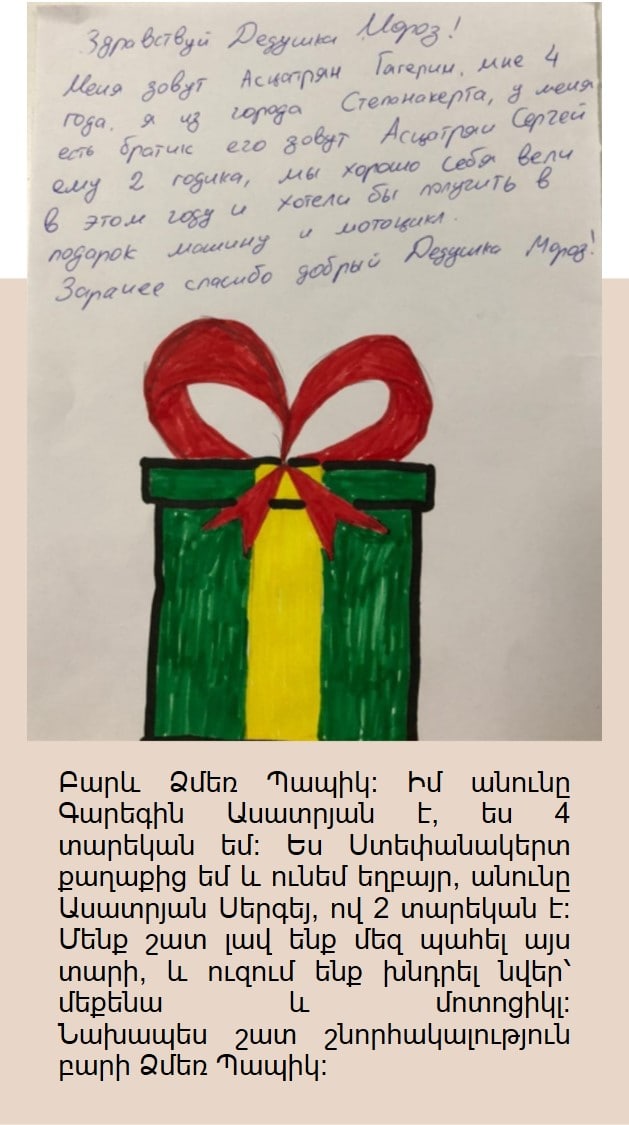 Здравствуй Дедушка Мороз!
Меня зовут Асцатрян Гагерин, мне 4
года. я из города Степонакерта, у меня
есть братик его зовут Асцатрян Сергей
ему 2 годика, мы хорошо себя вели
в этом году и хотели бы получить в
подарок машину и мотоцикл.
Заранее спасибо добрый Дедушка Мороз!
Բարև Ձմեռ Պապիկ: Իմ անունը
Գարեգին Ասատրյան է, ես 4
տարեկան եմ: Ես Ստեփանակերտ
քաղաքից եմ և ունեմ եղբայր, անունը
Ասատրյան Սերգեյ, ով 2 տարեկան է:
Մենք շատ լավ ենք մեզ պահել այս
տարի, և ուզում ենք խնդրել նվեր՝
մեքենա և մոտոցիկլ:
Նախապես շատ շնորհակալություն
բարի Ձմեռ Պապիկ: